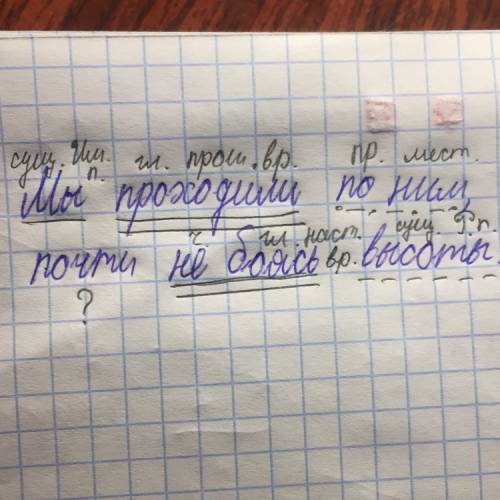 сущ. Им. п. гл. прош. вр. пр. мест.
Мы проходили по ним,
ч гл. наст. вр. сущ. Р. п.
почти не боясь высоты.
?